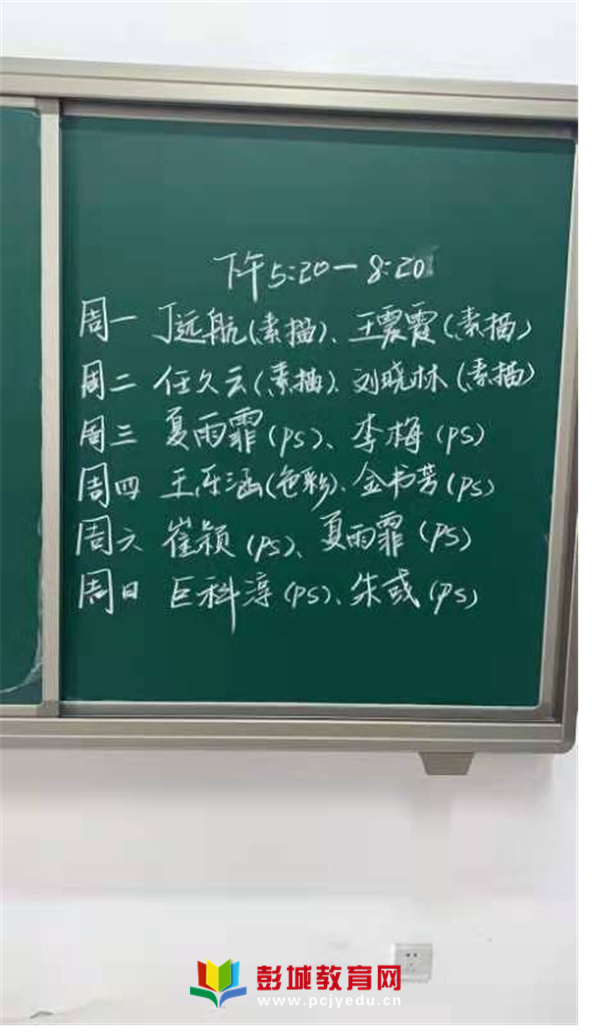 下午5:20-8:20
周一 丁远航(素描)、王震霞(素描)
周二 任久云(素描)、刘晓林(素描)
周三 夏雨霏(ps)、李梅(ps)
周四 王乐涵(色彩)、金书芳(ps)
周六 崔颖(ps)、夏雨霏(ps)
周日 巨科淳(ps)、朱彧(ps)
彭城教育网
www.pcjyedu.cn